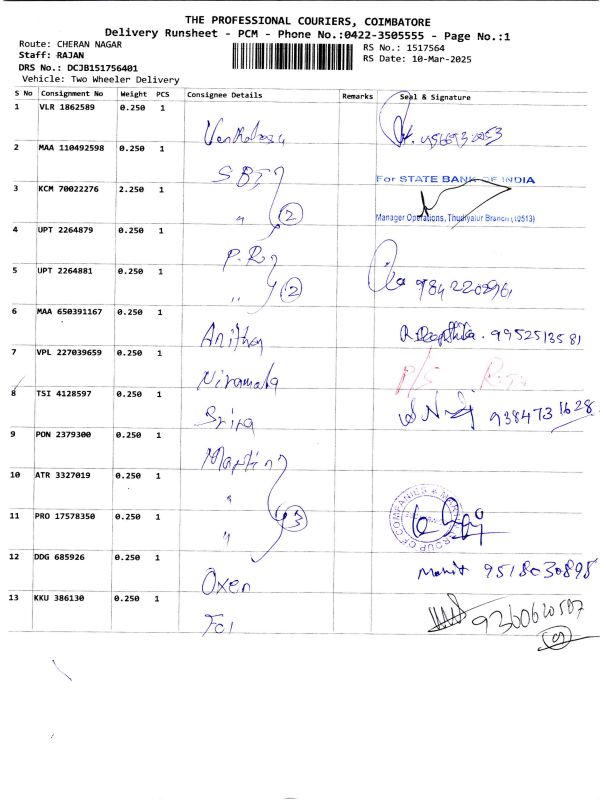 THE PROFESSIONAL COURIERS, COIMBATORE
Delivery Runsheet - PCM - Phone No.:0422-3505555 - Page No.:1
Route: CHERAN NAGAR
RS No.: 1517564
Staff: RAJAN
RS Date: 10-Mar-2025
DRS No.: DCJB151756401
Vehicle: Two Wheeler Delivery
S No Consignment No Weight PCS Consignee Details Remarks Seal & Signature
1 VLR 1862589 0.250 1
2 MAA 110492598 0.250 1 SBI For STATE BANK OF INDIA
3 KCM 70022276 2.250 1 " 2 Manager Operations, Thudiyalur Branch (10513)
4 UPT 2264879 0.250 1 P.R
5 UPT 2264881 0.250 1 " 2
6 MAA 650391167 0.250 1 Anitha 9952513581
7 VPL 227039659 0.250 1 Niramala
8 TSI 4128597 0.250 1 9384731628
9 PON 2379300 0.250 1 Martin
10 ATR 3327019 0.250 1 "
11 PRO 17578350 0.250 1 " 3 GROUP OF COMPANIES
12 DDG 685926 0.250 1 Oxen Mohit 9518030895
13 KKU 386130 0.250 1 Fci